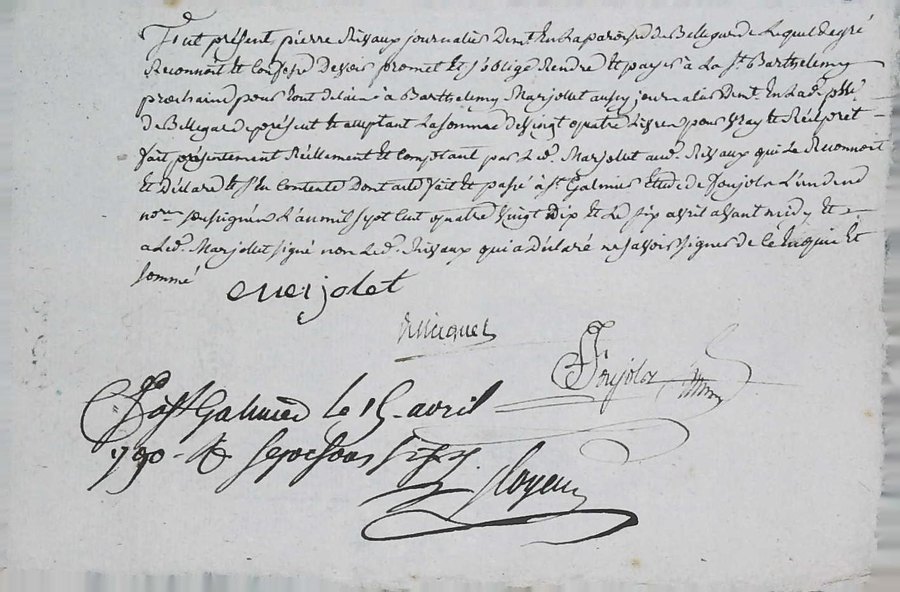 Fut présent pierre Rivaux journalier demt En La paroisse de Bellegarde Lequel de gré
Reconnoit Et Confesse Devoir promet Et s'oblige Rendre Et payer à La St. Barthelemy
prochaine pour tout délai à Barthelemy Marjollet aussy journalier demt. En Lad. psse
de Bellegarde présent Et acceptant La somme de vingt quatre Livres pour vray Et Réel pret
fait présentement Réellement Et Comptant par Led. Marjollet aud. Rivaux qui Le Reconnoit
Et Déclare Contente dont acte fait Et passé à St. Galmier Etude de Poujola L'un des
nores soussignés L'an mil sept Cent quatre vingt Dix Et Le six avril avant midy Et
a Led. Marjollet signé non Led. Rivaux qui a déclaré ne savoir signer de Ce Enquis Et
sommé
marjolet
Poujola
à St Galmier le 15 avril
1790 - R